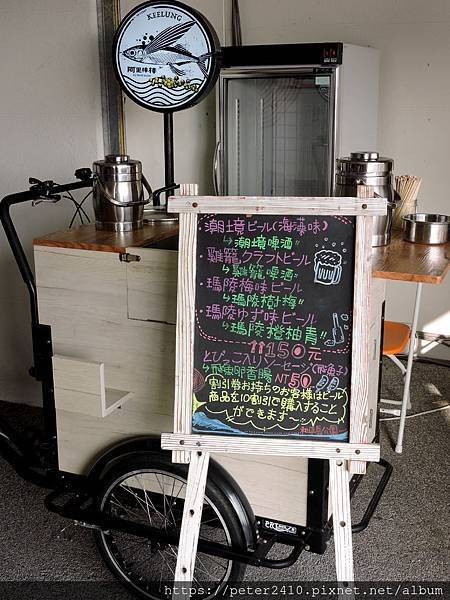 KEELUNG
潮境ビール(海藻味)
↳潮境啤酒"
雞籠クラフトビール
↳雞籠啤酒"
瑪陵梅味ビール
↳瑪陵樹梅"
瑪陵ゆず味ビール
↳瑪陵橙柚青"
150元
とびっこ入りソーセージ(飛魚子)
↳飛魚卵香腸 NT50
割引券お持ちのお客様はビール
商品を10割引で購入すること
ができます～
和平島公園
https://peter2410.pixnet.net/album